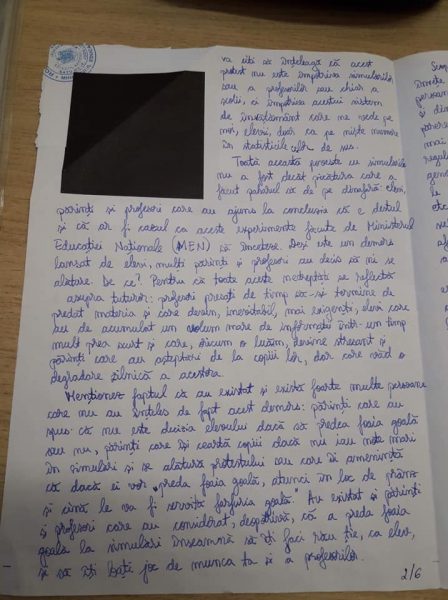 va citi să înțeleagă că acest
protest nu este împotriva simulărilor
sau a profesorilor sau chiar a
școlii, ci împotriva acestui sistem
de învățământ care ne vede pe
noi, elevii, doar ca pe niște numere
în statisticile celor de sus.
Toată această poveste cu simulările
nu a fost decât picătura care a
făcut paharul să de pe dinafară elevi,
părinți și profesori care au ajuns la concluzia că e destul
și că ar fi cazul ca aceste experimente făcute de Ministerul
Educației Naționale (MEN) să înceteze. Deși este un demers
lansat de elevi, mulți părinți și profesori au decis să ni se
alăture. De ce? Pentru că toate aceste nedreptăți se reflectă
asupra tuturor: profesori presați de timp să-și termine de
predat materia și care devin, inevitabil, mai exigenți, elevi care
au de acumulat un volum mare de informații într-un timp
mult prea scurt și care, oricum o luăm, devine stresant și
părinți care au așteptări de la copiii lor, dar care văd o
degradare zilnică a acestora.
Menționez faptul că au existat și există foarte multe persoane
care nu au înțeles de fapt acest demers: părinți care au
spus că nu este decizia elevului dacă să predea foaia goală
sau nu, părinți care își ceartă copiii dacă nu iau note mari
în simulări și se alătură protestului sau care îi amenință
că dacă ei vor „preda foaia goală, atunci în loc de prânz
și cină le va fi servită farfuria goală." Au existat și părinți
și profesori care au considerat, deopotrivă, că a preda foaia
goală la simulări înseamnă să îți faci rău ție, ca elev,
și să îți bați joc de munca ta și a profesorilor.
2/6